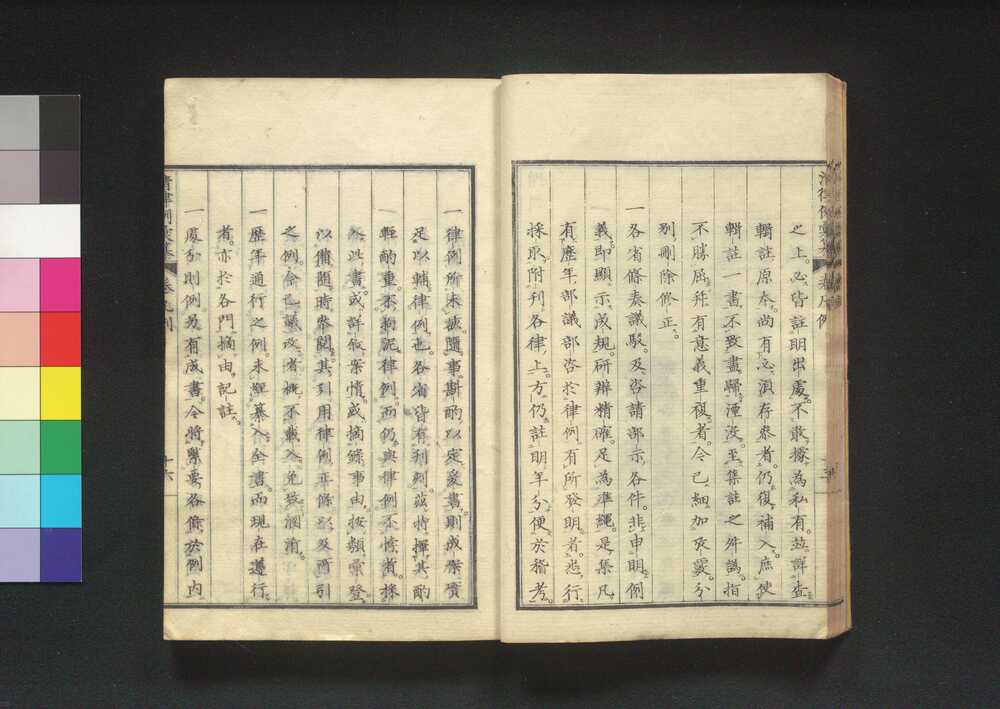 之上必皆註明出處。不敢據為私有。並詳查
輯註原本。尚有必須存參者。仍復補入。庶使
輯註一書。不致盡歸湮沒。至集註之舛譌。指
不勝屈。殊有意義重複者。今已細加
別刪除修正。
一各省條奏議駁。及咨請部示各件。非申明例
義。即顯示成規。研辨精確。足為準繩。是集凡
有歷年部議部咨於律例有所發明者。悉行
採取。附刊各律上方。仍註明年分。便於稽考。
一律例所未載。隨事斟酌。以定爰書。則成案實
足以輔律例也。各省皆有刊刻。茲特擇其酌
輕酌重。不拘泥律例。而仍與律例不悖者。採
此書。或詳敘案情。或摘錄事由。按類彙登。
以備隨時參閱。其引用律例。及所引
之例。今已議改者。概不載入。免致溷淆。
一歷年通行之例。未經纂入全書。而現在遵行
者。亦於各門摘由記註。
一處分則例。另有成書。今將緊要各條。於例內